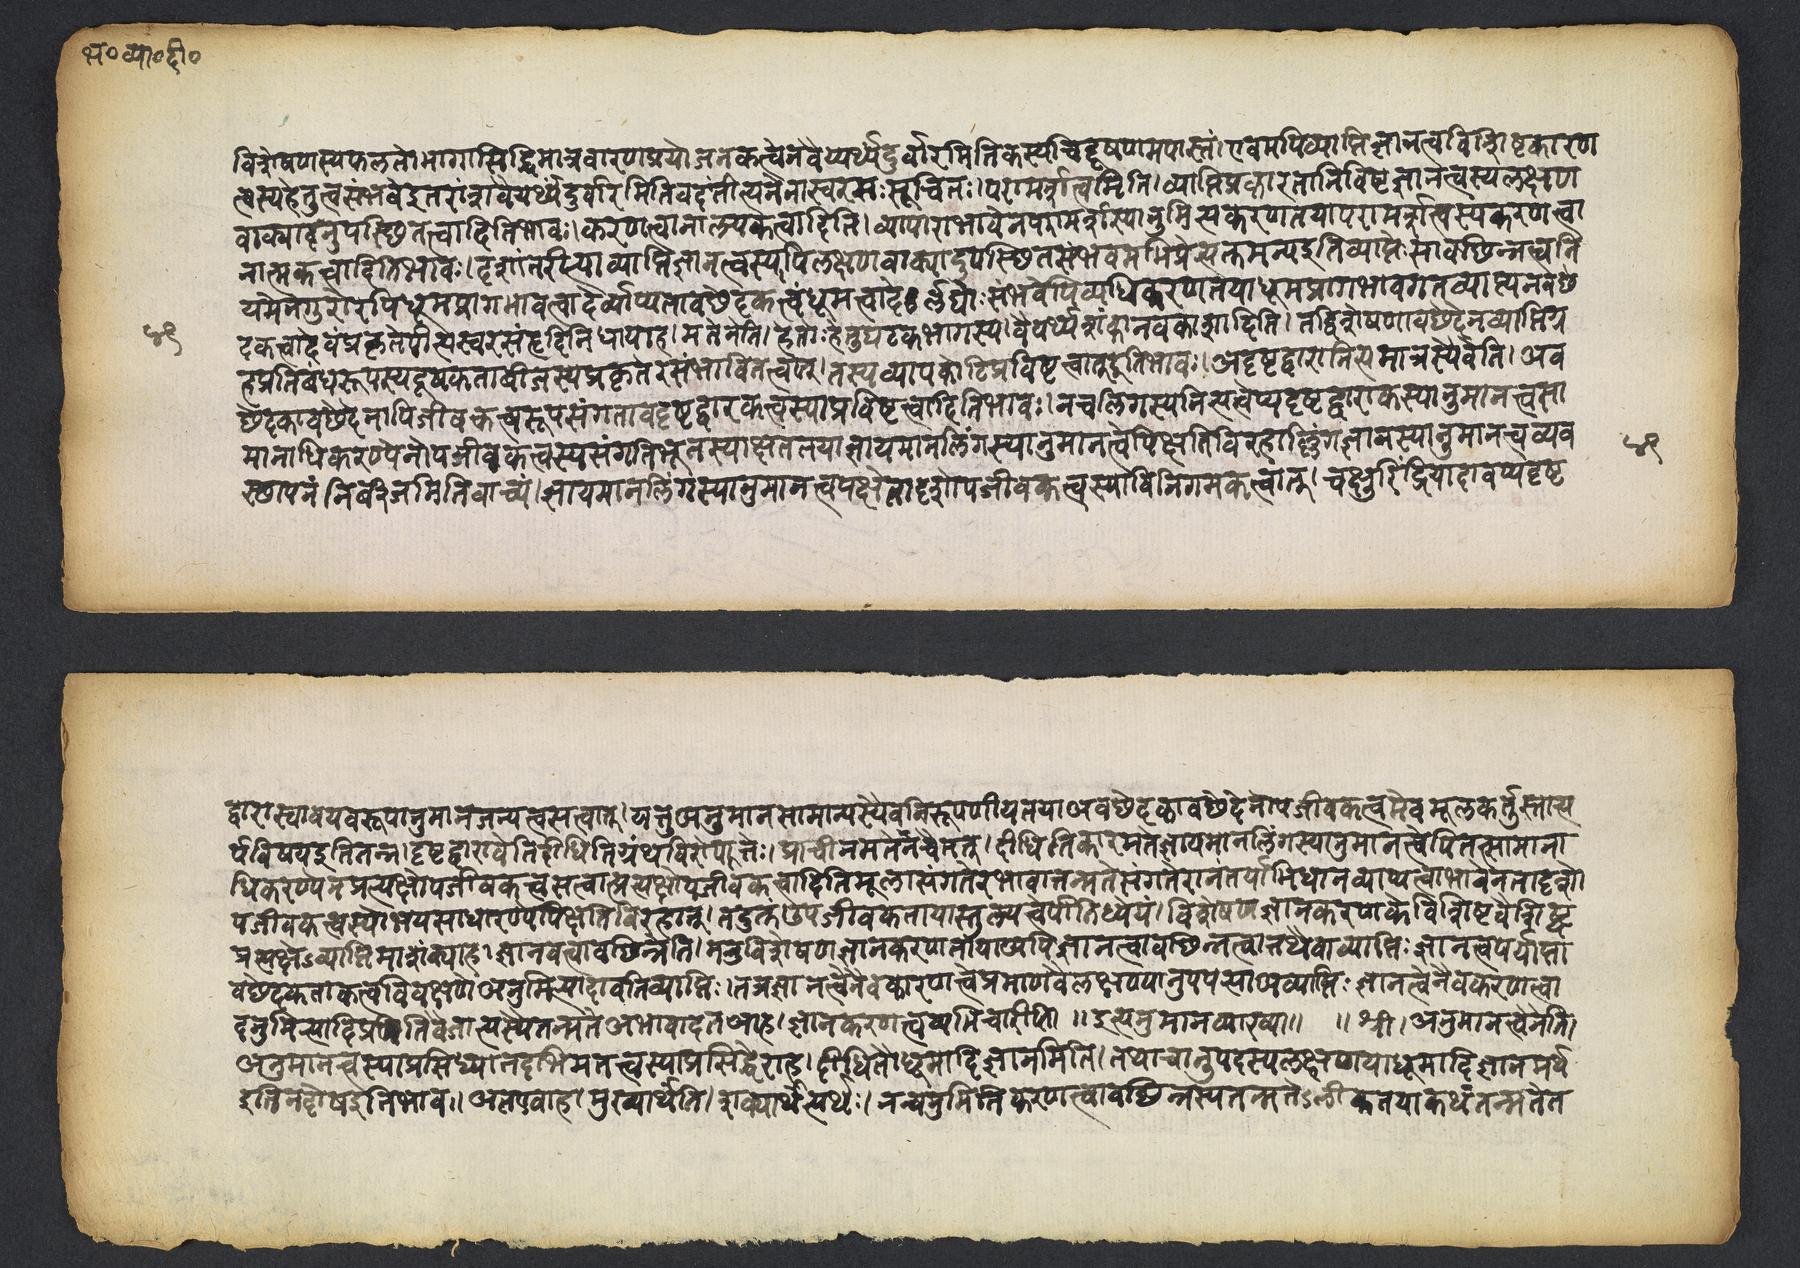 भ०व्या०दी०
विशेषणस्यफलतोभागासिद्धिमात्रवारणप्रयोजनकत्वेनवैयर्थ्यंदुर्वारमितिकस्यचिद्दूषणमपास्तं।एवमपिव्याप्तिज्ञानत्वविशिष्टकारण
त्वस्यहेतुत्वसंभवेइतरांशवैयर्थ्यंदुर्वारमितिवदंतीत्यनेनास्वरसःसूचितः।परामर्शत्वमिति।व्याप्तिप्रकारतानिविष्टज्ञानत्वस्यलक्षण
वाक्यादनुपस्थितत्वादितिभावः।करणत्वानात्मकत्वादिति।व्यापाराभावेनपरामर्शस्यानुमित्यकरणतयापरामर्शत्वस्यकरणत्वा
नात्मकत्वादितिभावः।दृशांतरीत्याव्याप्तिज्ञानत्वस्यपिलक्षणवाक्यादुपस्थितसंभवमभिप्रेत्यक्तमन्यइतिव्याप्तेःसावछिन्नत्वनि
यमेनगुरोरपिधूमप्रागभावत्वादेर्व्याप्यतावछेदकत्वंधूमत्वादेर्लघोःसंभवेपिव्यधिकरणतयाधूमप्रागभावगतव्याप्यनवछे
दकत्वादेवंप्रकृतेपीत्यस्वरसंहृदिनिधायाह।मतेनेति।हेतोःहेतुघटकभागस्य।वैयर्थ्यशंकानवकाशादिति।तद्विशेषणावछेदेनव्याप्तिग्र
हप्रतिबंधरूपस्यदूषकताबीजस्यप्रकृतेरसंभावितत्वात्।तस्यव्यापककोटिप्रविष्टत्वादुइतिभावः।अदृष्टद्वारानित्यमात्रस्यैवेति।अव
छेदकावछेदेनापिजीवकत्वरूपसंगतावदृष्टद्वारकत्वस्याप्रविष्टत्वादितिभावः।नचलिंगस्यनित्यत्वेप्यदृष्टद्वाराकस्यानुमानत्वसा
मानाधिकरण्येनोपजीवकत्वस्यसंगतिभूतस्याक्षततयाज्ञायमानलिंगस्यानुमानत्वेपिक्षतिविरहाल्लिंगज्ञानस्यानुमानत्वव्यव
स्थापनं निर्बीजमितिवाच्यं।ज्ञायमानलिंगस्यानुमानत्वपक्षेतादृशोपजीवकत्वस्याविनिगमकत्वात्।चक्षुरिंद्रियादावप्यदृष्ट
५९
५९
द्वारास्वावयवरूपानुमानजन्यत्वसत्वात्।यत्तुअनुमानसामान्यस्यैवनिरूपणीयतयाअवछेदकावछेदेनोपजीवकत्वमेवमूलकर्तुस्तात्प
र्यविषयइतितन्न।दृष्टद्वारावेतिदीधितिग्रंथविरोधात्तेः।प्राचीनमतेनचैतत्।दीधितिकारमतेज्ञायमानलिंगस्यानुमानत्वेपितत्सामाना
धिकरण्येनप्रत्यक्षोपजीवकत्वसत्वात्प्रत्यक्षोपजीवकत्वादितिमूलासंगतेरभावात्तन्मतेसंगतेरानंतर्याभिधानव्याप्यत्वाभावेनतादृशो
पजीवकत्वस्योभयसाधारण्येपिक्षतिविरहात्।तदुक्तंउपजीवकतायास्तुल्यत्वेपीतिध्येयं।विशेषणज्ञानकरणकेविशिष्टवैशिष्ट्य
प्रत्यक्षेऽव्याप्तिमाशंक्याह।ज्ञानवत्वावछिन्नेति।ननुविशेषणज्ञानकरणतायाअपिज्ञानत्वावछिन्नत्वात्तथैवाव्याप्तिःज्ञानत्वपर्याप्ता
वछेदकताकत्वविवक्षणेअनुमित्यादावतिव्याप्तिः।तत्रज्ञानत्वेनैवकारणत्वेप्रमाणवैलक्षण्यानुपपत्त्याअव्याप्तिःज्ञानत्वेनैवकरणत्वा
दनुमित्यादिप्रमितिवैजात्यस्यैतन्मतेअभावादतआह।ज्ञानकरणत्वव्यभिचारीति॥इत्यनुमानव्याख्या॥ ॥श्री।अनुमानत्वेनेति।
अनुमानत्वस्याप्रसिध्यातदभिमतत्वस्याप्रसिद्धेराह।दीधितौधूमादिज्ञानमिति।तथाचानुपदस्यलक्षणयाधूमादिज्ञानमर्थ
इतिनदोषइतिभावः॥अतएवाह।मुख्यार्थेति।शक्यार्थेत्यर्थः।नन्वनुमितिकरणत्वावछिन्नस्यतन्मतेऽलीकतयाकथंतन्मतेत